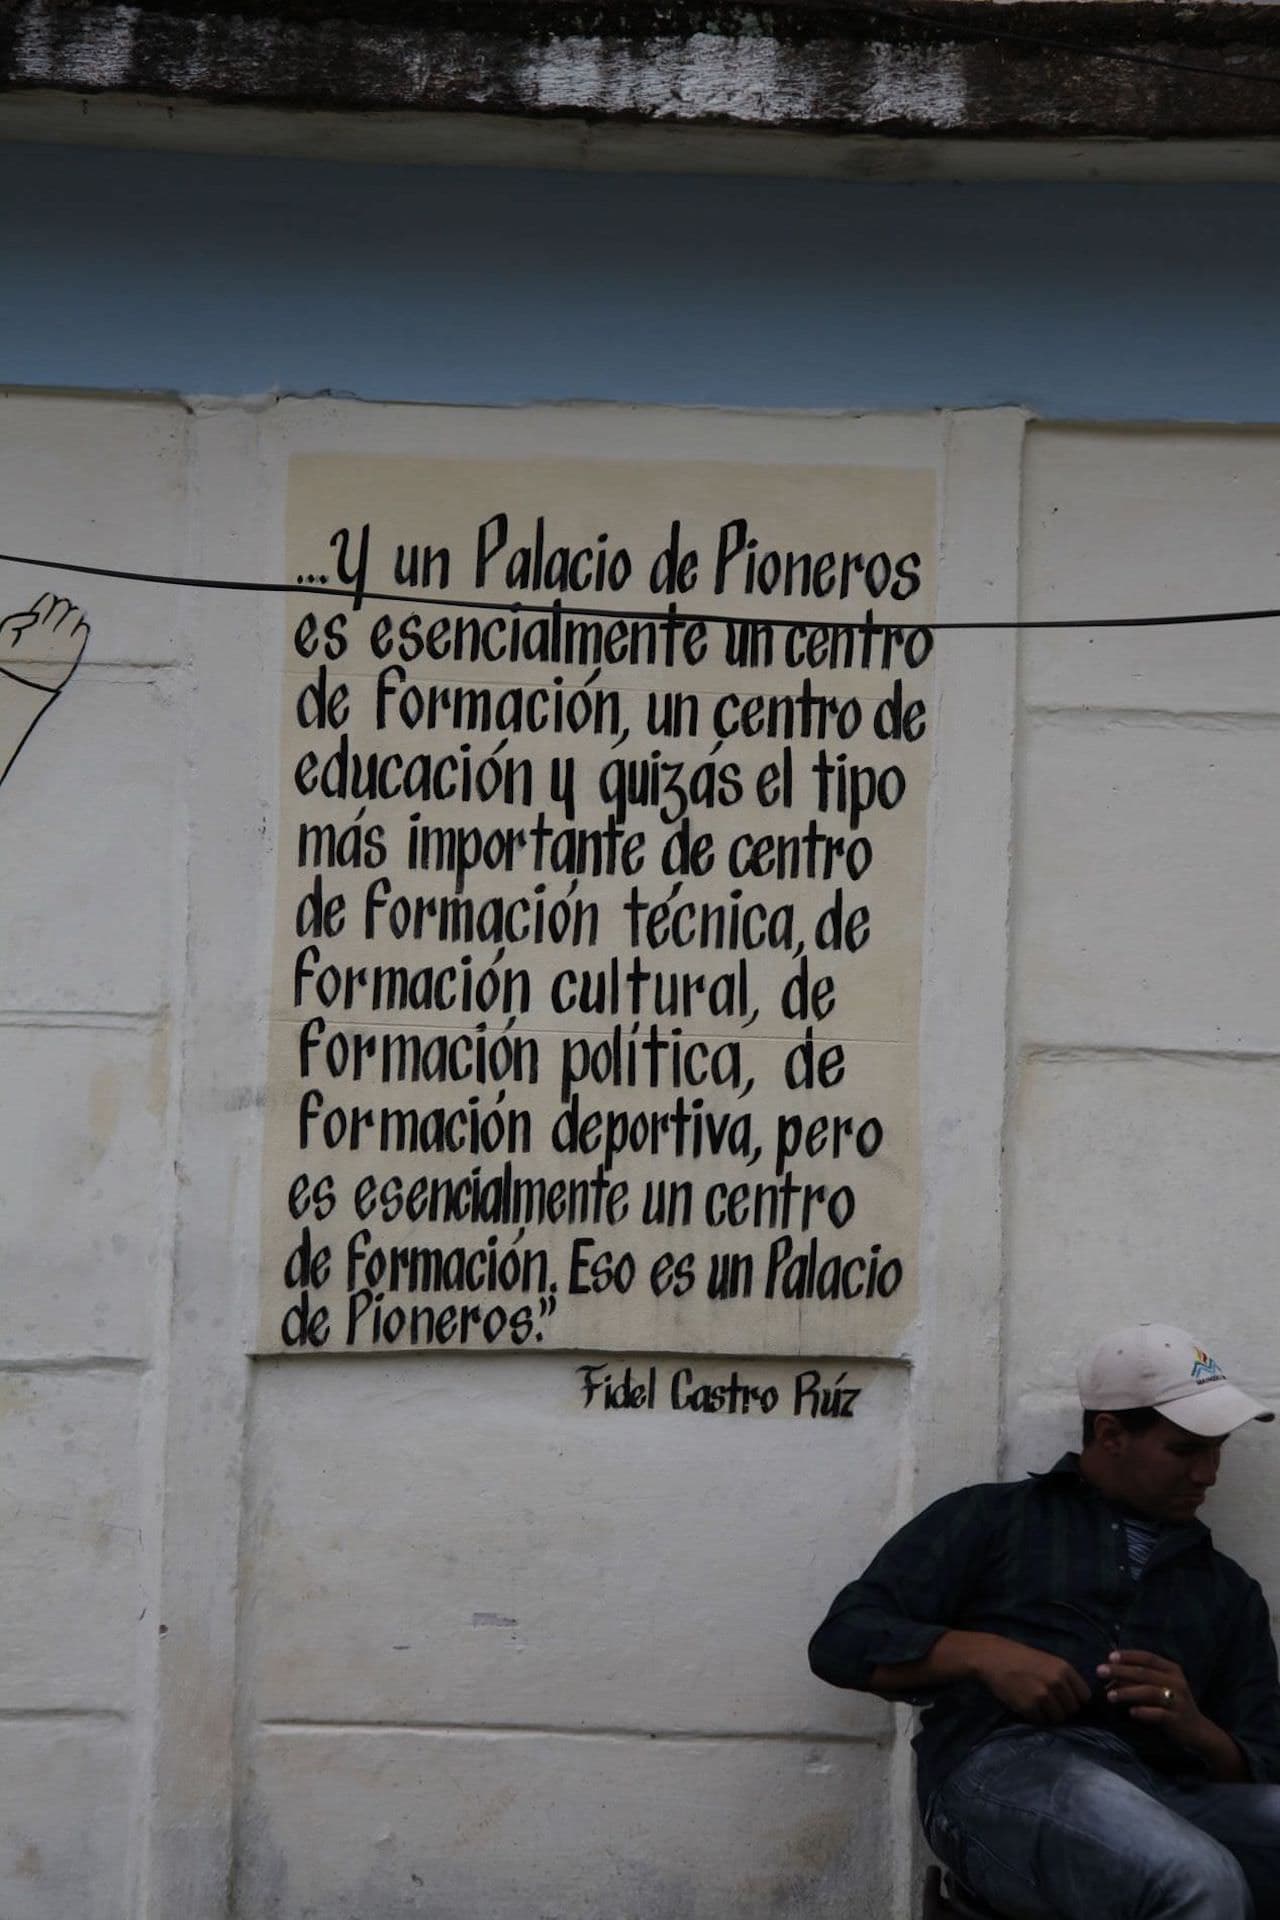 ...Y un Palacio de Pioneros
es esencialmente un centro
de formación, un centro de
educación y quizás el tipo
más importante de centro
de formación técnica, de
formación cultural, de
formación política, de
formación deportiva, pero
es esencialmente un centro
de formación. Eso es un Palacio
de Pioneros."
Fidel Castro Rúz